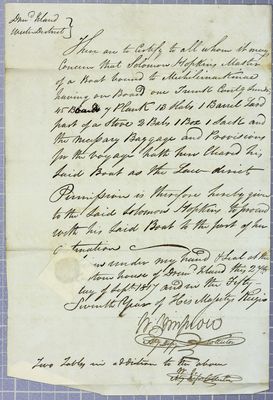 Drumd Island
Western District
These are to Certify to all whom it may
Concern that Solomon Hopkins Master
of a Boat bound to Michilimackinac
having on Board one Trunk
45 Boards 7 Plank 12 1 Barrel Lard
part of a Stove 2 Bls 1 Box 1 Sack and
the necessary Baggage and Provisions
for the voyage hath here Cleared his
said Boat as the Law directs
Permission is therefore hereby given
to the said Solomon Hopkins to proceed
with his said Boat to the port of her
destination
under my hand & seal at the
house of Drumd Island this
day of Sept 1817 and in the Fifty
Seventh Year of His Majestys Reign
Two Tables in addition to the above